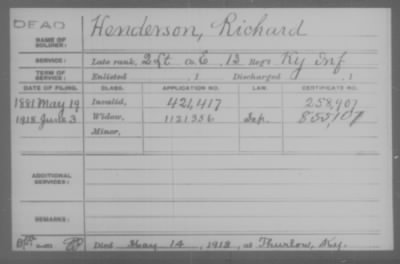 DEAD
Henderson, Richard
NAME OF SOLDIER:
SERVICE: Late rank, 2 Lt Co. E, 13 Reg't Ky Inf
TERM OF SERVICE: Enlisted , 1 Discharged , 1
DATE OF FILING. CLASS. APPLICATION NO. LAW. CERTIFICATE NO.
1881 May 19 Invalid, 421,417 258,907
1918 June 3 Widow, 1121336 855,107
Minor,
ADDITIONAL SERVICES:
REMARKS:
Died May 14, 1918, at Thurlow, Ky.